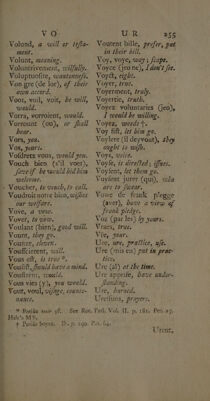 V O
U R
255
Volund, a will or testa-
ment.
Volunt, meaning.
Voluntrivement, wilfully.
Voluptuosite, wantonness.
Von gre (de lor), of their
own accord.
Voot, vuil, voit, be will,
would.
Vorra, vorroient, would.
Vorreount (ou), or shall
bear.
Vors, you.
Vos, yours.
Vosdrets vous, would you.
Vouch bien (s'il voet),
save if he would bid him
welcome.
Voucher, to vouch, to call.
Voudroit notre bien, wishes
our welfare.
Vove, a vow.
Vover, to vow.
Voulant (bien), good will.
Vount, they go.
Vounze, eleven.
Vousissent, will.
Vous est, is true *.
Vousist, should have a mind.
Voussent, would.
Vous vies (y), you would.
Vout, voul, visage, counte-
nance.
Voutent bille, prefer, put
in their bill.
Voy, voye, way; steps.
Voyce (jeo ne), I don't see.
Voyst, right.
Voyer, true.
Voyerement, truly.
Voyertie, truth.
Voyez voluntaries (jeo),
I would be willing.
Voyez, woods †.
Voy fist, let him go.
Voylere (il deyvout), they
ought to wish.
Voys, voice.
Voyse, is directed; issues.
Voysent, let them go.
Voysent jurer (qui), who
are to swear.
Vowe de frank plegge
(aver), have a view of
frank pledge.
Vu (par les) by yours.
Vraes, true.
Vse, your.
Ure, ure, practice, use.
Ure (mis en) put in prac-
tice.
Ure (al) at the time.
Ure appresse, have under-
standing.
Ure, burned.
Uretisuns, prayers.
* Potius voir est. See Rot. Parl. Vol. II. p. 181. Pet. 27.
Hale's MS.
† Potius boyez. D. p. 290. Pet. 64.
Urent,